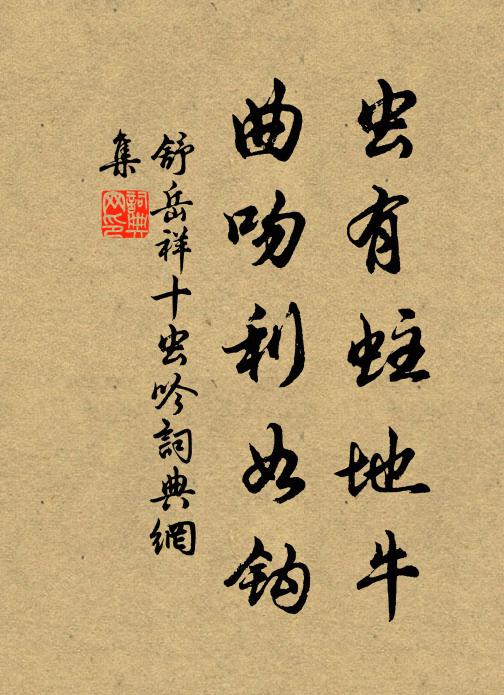 虫有蛀地牛
曲吻利如钩
舒岳祥十虫吟詞典網
集
詞典网印